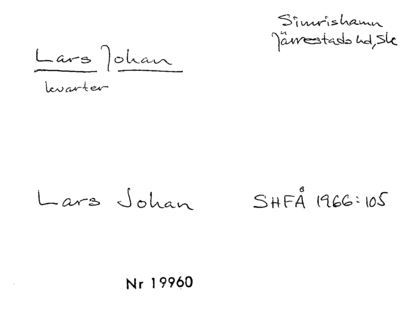 Simrishamn
Järrestads hd, Sk
Lars Johan
kvarter
Lars Johan SHFÅ 1966:105
Nr 19960